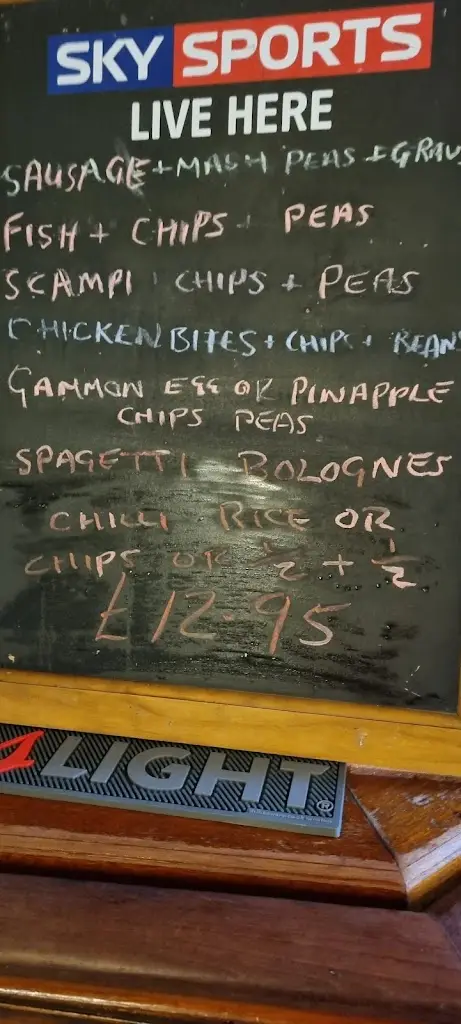 SKY SPORTS
LIVE HERE
SAUSAGE + MASH PEAS + GRAV
FISH + CHIPS + PEAS
SCAMPI + CHIPS + PEAS
CHICKEN BITES + CHIPS + BEANS
GAMMON EGG OR PINAPPLE
CHIPS PEAS
SPAGETTI BOLOGNES
CHILLI RICE OR
CHIPS OR 1/2 + 1/2
£12.95
LIGHT®